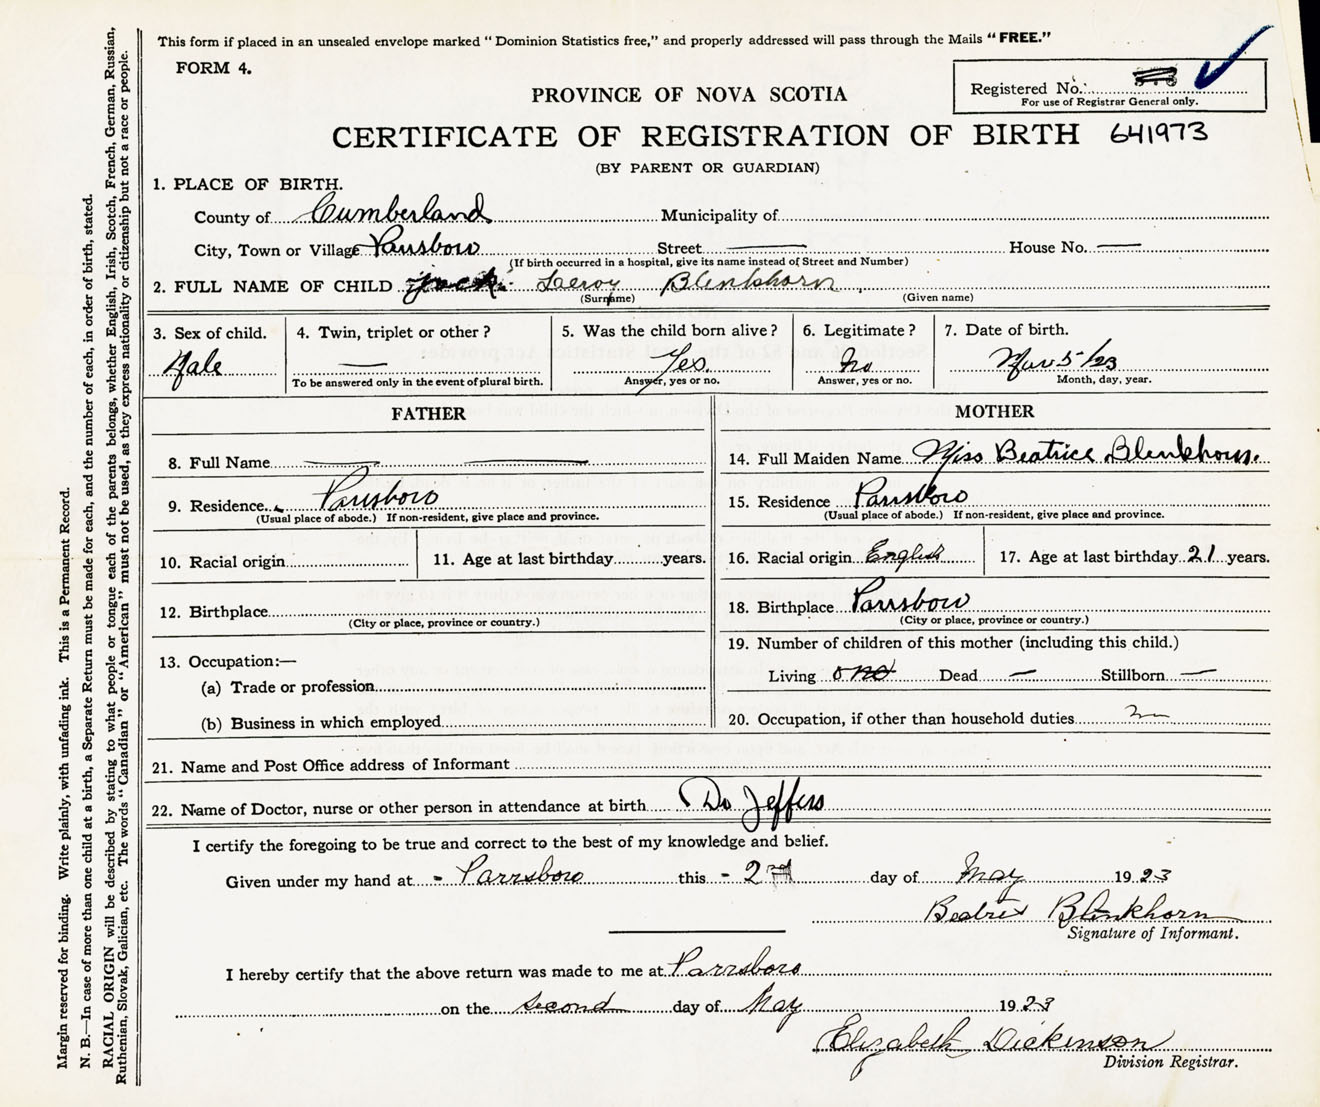 This form if placed in an unsealed envelope marked "Dominion Statistics free," and properly addressed will pass through the Mails "FREE."
FORM 4.
Registered No.
For use of Registrar General only.
PROVINCE OF NOVA SCOTIA
CERTIFICATE OF REGISTRATION OF BIRTH 641973
(BY PARENT OR GUARDIAN)
1. PLACE OF BIRTH.
County of Cumberland Municipality of
City, Town or Village Parrsboro Street — House No. —
(If birth occurred in a hospital, give its name instead of Street and Number)
2. FULL NAME OF CHILD Jack Leroy Blenkhorn
(Surname) (Given name)
3. Sex of child. 4. Twin, triplet or other? 5. Was the child born alive? 6. Legitimate? 7. Date of birth.
Male — Yes. No Mar 5/23
To be answered only in the event of plural birth. Answer, yes or no. Answer, yes or no. Month, day, year.
FATHER
8. Full Name — —
9. Residence Parrsboro
(Usual place of abode.) If non-resident, give place and province.
10. Racial origin 11. Age at last birthday years.
12. Birthplace
(City or place, province or country.)
13. Occupation:—
(a) Trade or profession
(b) Business in which employed
MOTHER
14. Full Maiden Name Miss Beatrice Blenkhorn.
15. Residence Parrsboro
(Usual place of abode.) If non-resident, give place and province.
16. Racial origin English 17. Age at last birthday 21 years.
18. Birthplace Parrsboro
(City or place, province or country.)
19. Number of children of this mother (including this child.)
Living one Dead — Stillborn —
20. Occupation, if other than household duties
21. Name and Post Office address of Informant
22. Name of Doctor, nurse or other person in attendance at birth Dr Jeffers
I certify the foregoing to be true and correct to the best of my knowledge and belief.
Given under my hand at - Parrsboro this - 2nd day of May 1923
Beatrix Blenkhorn
Signature of Informant.
I hereby certify that the above return was made to me at Parrsboro
on the second day of May 1923
Elizabeth Dickinson
Division Registrar.
Margin reserved for binding. Write plainly, with unfading ink. This is a Permanent Record.
N. B.—In case of more than one child at a birth, a Separate Return must be made for each, and the number of each, in order of birth, stated.
RACIAL ORIGIN will be described by stating to what people or tongue each of the parents belongs, whether English, Irish, Scotch, French, German, Russian,
Ruthenian, Slovak, Galician, etc. The words "Canadian" or "American" must not be used, as they express nationality or citizenship but not a race or people.